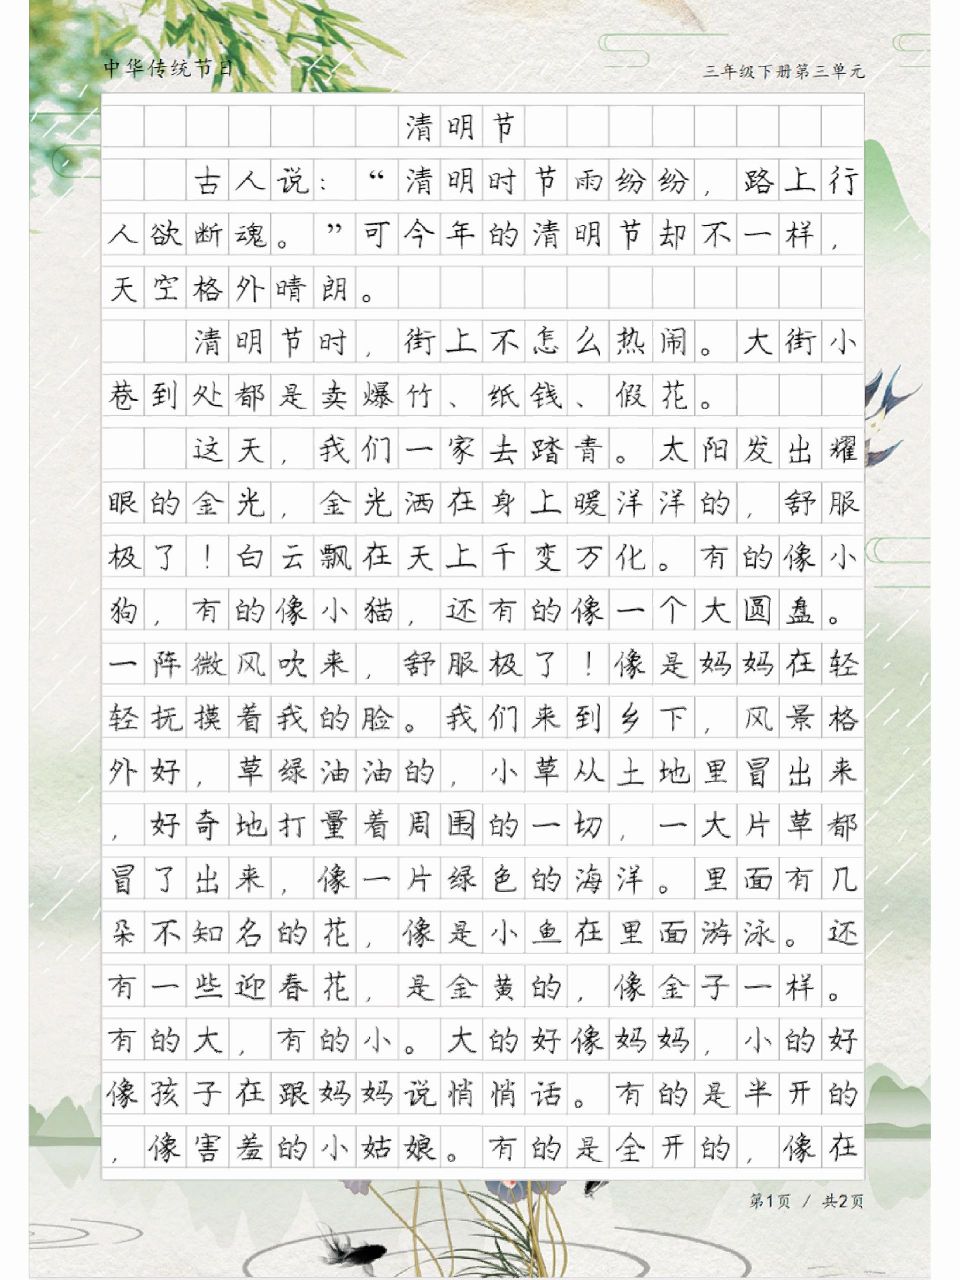 中华传统节日
三年级下册第三单元
清明节
古人说：“清明时节雨纷纷，路上行
人欲断魂。”可今年的清明节却不一样，
天空格外晴朗。
清明节时，街上不怎么热闹。大街小
巷到处都是卖爆竹、纸钱、假花。
这天，我们一家去踏青。太阳发出耀
眼的金光，金光洒在身上暖洋洋的，舒服
极了！白云飘在天上千变万化。有的像小
狗，有的像小猫，还有的像一个大圆盘。
一阵微风吹来，舒服极了！像是妈妈在轻
轻抚摸着我的脸。我们来到乡下，风景格
外好，草绿油油的，小草从土地里冒出来
，好奇地打量着周围的一切，一大片草都
冒了出来，像一片绿色的海洋。里面有几
朵不知名的花，像是小鱼在里面游泳。还
有一些迎春花，是金黄的，像金子一样。
有的大，有的小。大的好像妈妈，小的好
像孩子在跟妈妈说悄悄话。有的是半开的
，像害羞的小姑娘。有的是全开的，像在
第1页 / 共2页